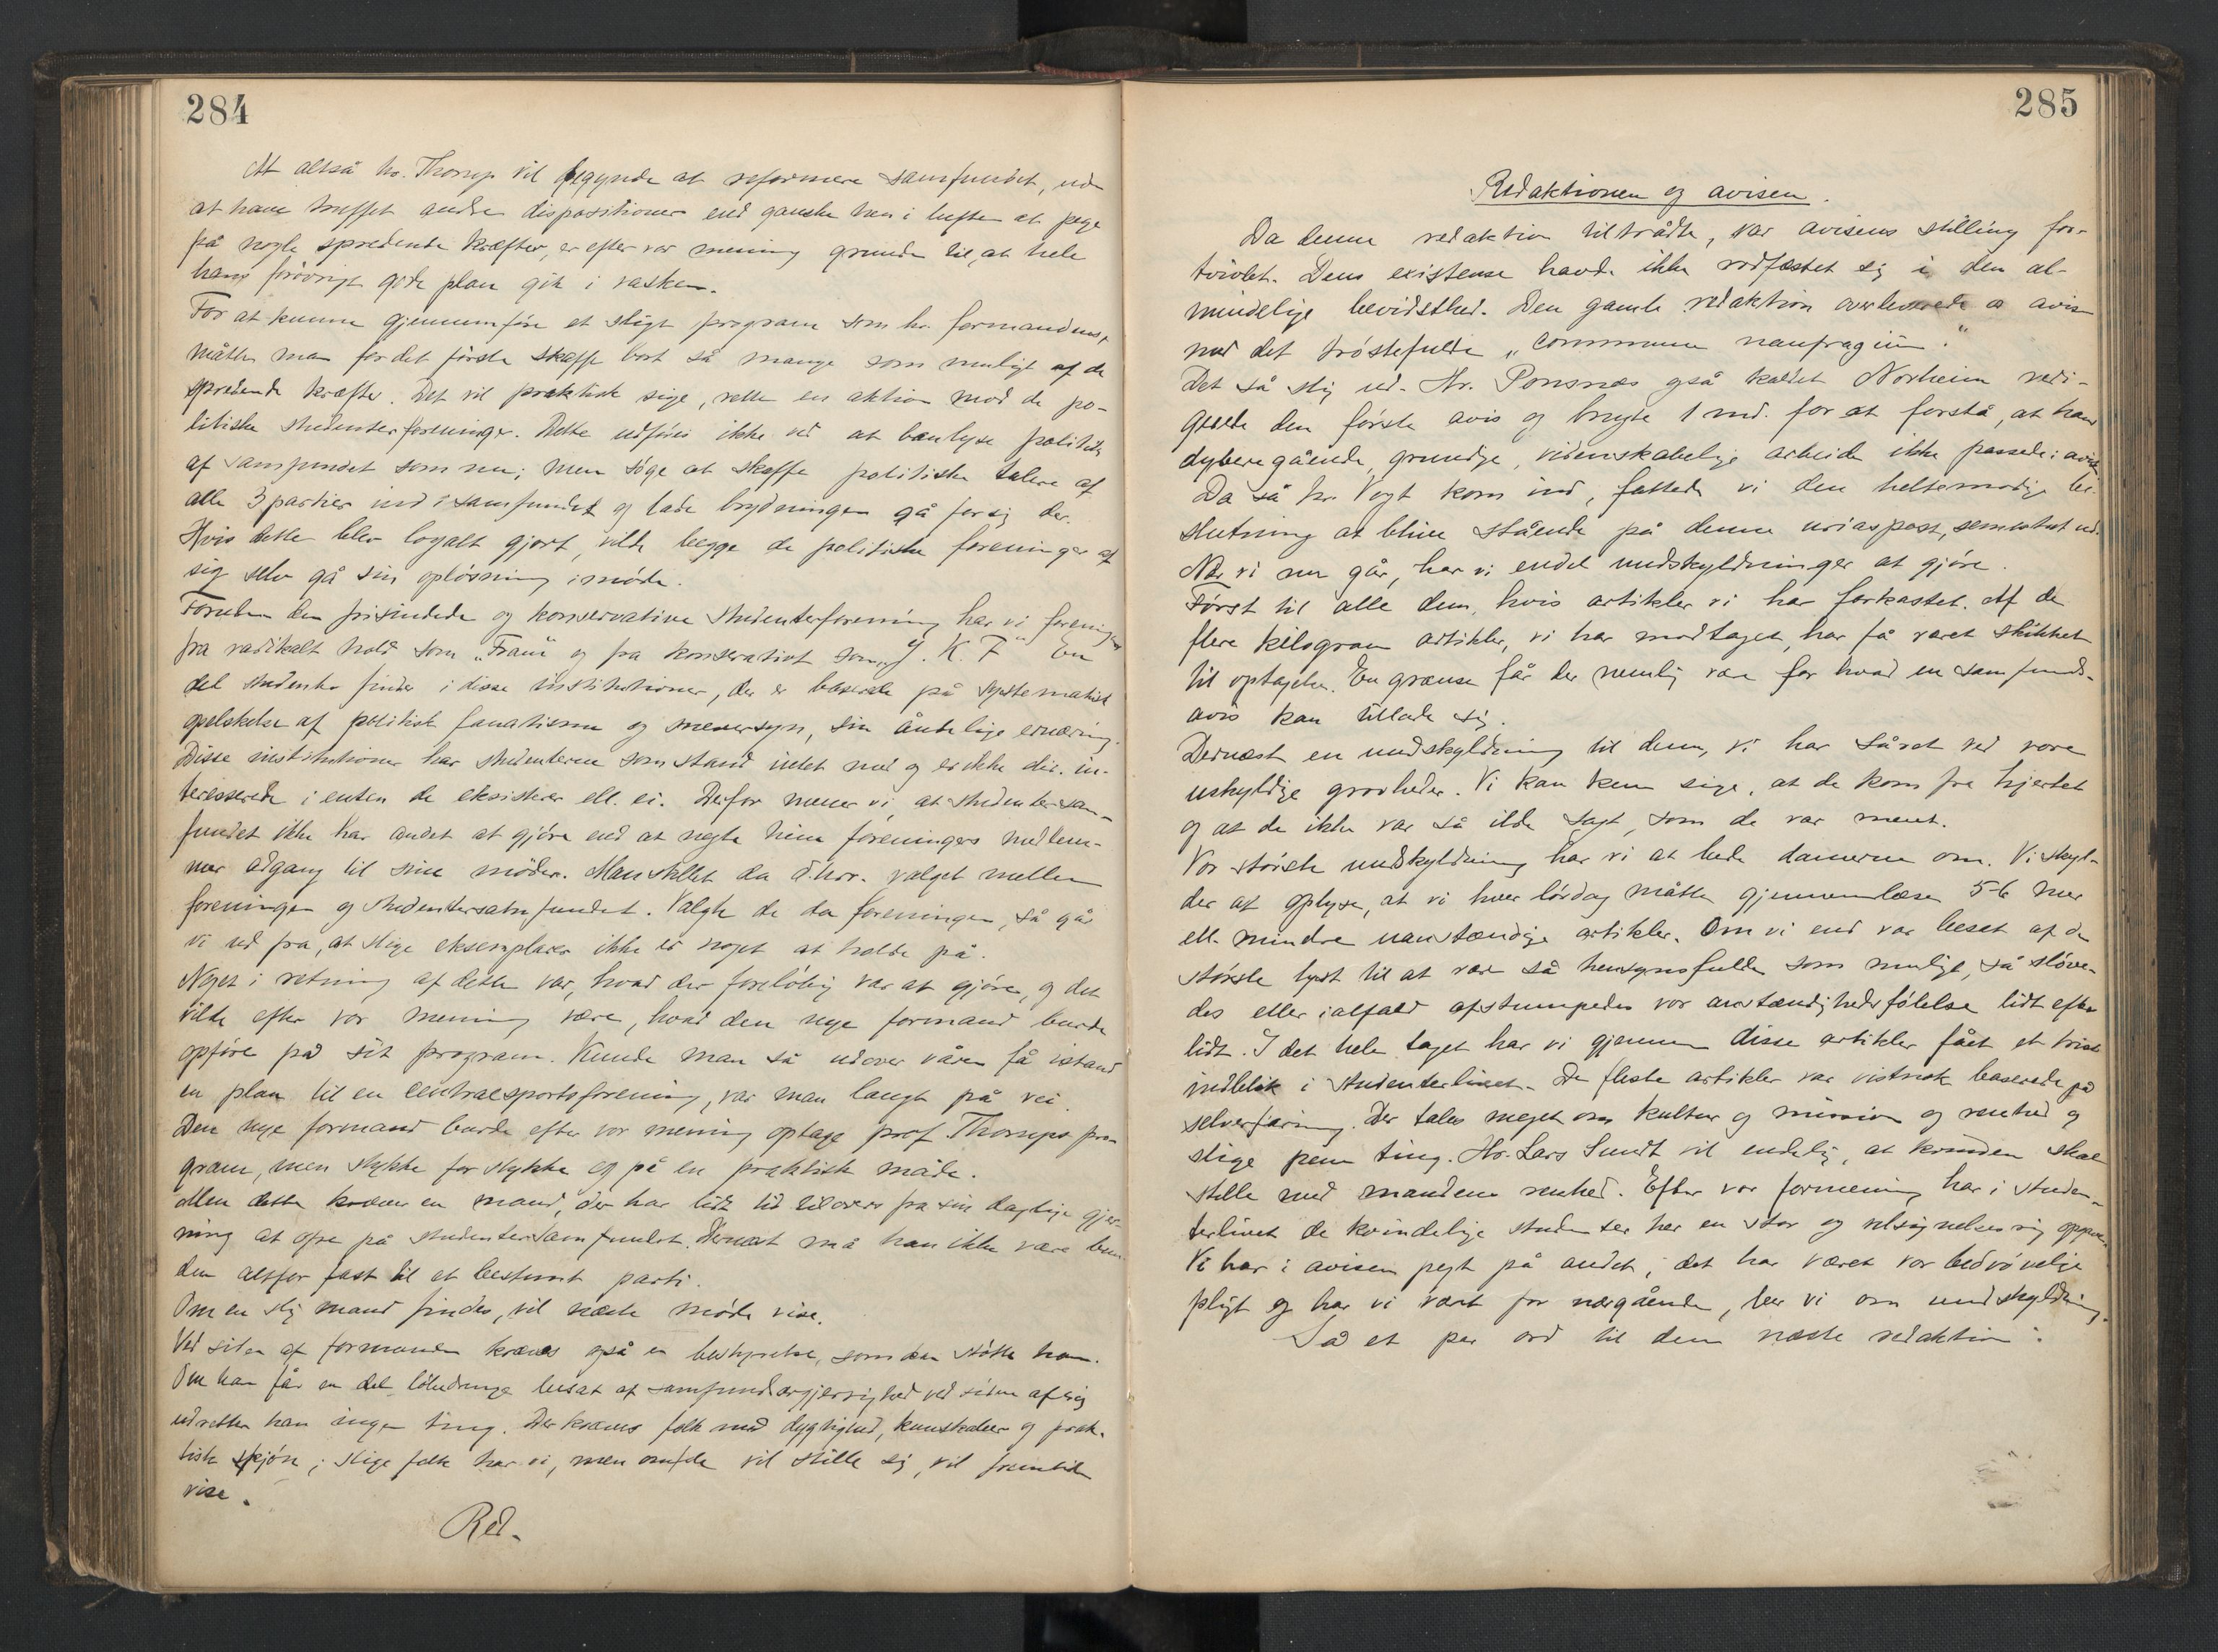 284
At altså hr. Thorup vil begynde at reformere samfundet, uden
at have truffet andre dispositioner end ganske hen i luften at pege
på nogle spredende kræfter, er efter vor mening grunden til, at hele
hans forøvrigt gode plan gik i vasken.
For at kunne gjennemføre et sligt program som hr. formandens,
måtte man for det første skaffe bort så mange som muligt af de
spredende kræfter. Det vil praktisk sige, rette en aktion mod de po-
litiske studenterforeninger. Dette udføres ikke ved at banlyse politik
af samfundet som nu; men søge at skaffe politiske talere af
alle 3 partier ind i samfundet og lade brydningen gå for sig der.
Hvis dette blev loyalt gjort, vilde begge de politiske foreninger af
sig selv gå sin opløsning imøde.
Foruden den frisindede og konservative Studenterforening har vi foreninger
fra radikalt hold som „Fram" og fra konservativt som „J. K. F" En
del studenter finder i disse institutioner, der er baserede på systematisk
opelskelse af politisk fanatisme og snæversyn, sin åndelige ernæring.
Disse institutioner har studenterne som stand intet med og er ikke dir. in-
teresserede i enten de eksisterer ell. ei. Derfor mener vi, at studentersam-
fundet ikke har andet at gjøre end at negte hine foreningers medlem-
mer adgang til sine møder. Man stillet da d'hrr. valget mellem
foreningen og studentersamfundet. Valgte de da foreningen, så går
vi ud fra, at slige eksemplarer ikke er noget at holde på.
Noget i retning af dette var, hvad der foreløbig var at gjøre, og det
vilde efter vor mening være, hvad den nye formand burde
opføre på sit program. Kunde man så udover våren få istand
en plan til en centralsportsforening, var man langt på vei.
Den nye formand burde efter vor mening optage prof. Thorups pro-
gram, men stykke for stykke og på en praktisk måde.
Men dette kræver en mand, der har lidt tid tilovers fra sin daglige gjer-
ning at ofre på studentersamfundet. Dernæst må han ikke være bun-
den altfor fast til et bestemt parti.
Om en slig mand findes, vil næste møde vise.
Ved siden af formanden kræves også en bestyrelse, som kan støtte ham.
Om han får en del besat af samfundsærgjerrighed ved siden af sig
udretter han ingen ting. Der kræves folk med dygtighed, kunskaber og prak-
tisk skjøn; slige folk har vi, men om de vil stille sig, vil fremtiden
vise.
Red.
285
Redaktionen og avisen.
Da denne redaktion tiltrådte, var avisens stilling for-
tvivlet. Dens existense havde ikke rodfæstet sig i den al-
mindelige bevidsthed. Den gamle redaktion overleverede os avisen
med det trøstefulde „commune naufragium".
Det så slig ud. Hr. Ponsnæs også kaldet Norheim redi-
gerede den første avis og brugte 1 md. for at forstå, at hans
dyberegående, grundige, videnskabelige arbeide ikke passede i avisen
Da så hr. Vogt kom ind, fattede vi den heltemodige be-
slutning at blive stående på denne uriaspost, semestret ud.
Når vi nu går, har vi endel undskyldninger at gjøre.
Først til alle dem, hvis artikler vi har forkastet. Af de
flere kilogram artikler, vi har modtaget, har få været skikket
til optagelse. En grænse får der nemlig være for hvad en samfunds-
avis kan tillade sig.
Dernæst en undskyldning til dem, vi har såret ved vore
uskyldige grovheder. Vi kan kun sige, at de kom fra hjertet
og at de ikke var så ilde sagt, som de var ment.
Vor største undskyldning har vi at bede damerne om. Vi skyl-
der at oplyse, at vi hver lørdag måtte gjennemlæse 5-6 mer
ell. mindre uanstændige artikler. Om vi end var besat af den
største lyst til at være så hensynsfulde som muligt, så sløve-
des eller ialfald afstumpedes vor anstændighedsfølelse lidt efter
lidt. I det hele taget har vi gjennem disse artikler fået et trist
indblik i studenterlivet. De fleste artikler var vistnok baserede på
selverfaring. Der tales meget om kultur og mission og renhed og
slige pene ting. Hr. Lars Sundt vil endelig, at kvinden skal
stille med mandens renhed. Efter vor formening har i studen-
terlivet de kvindelige studenter her en stor og velsignelsesrig opgave.
Vi har i avisen pegt på andet; det har været vor bedrøvelige
pligt og har vi vært for nærgående, ber vi om undskyldning.
Så et par ord til den næste redaktion: